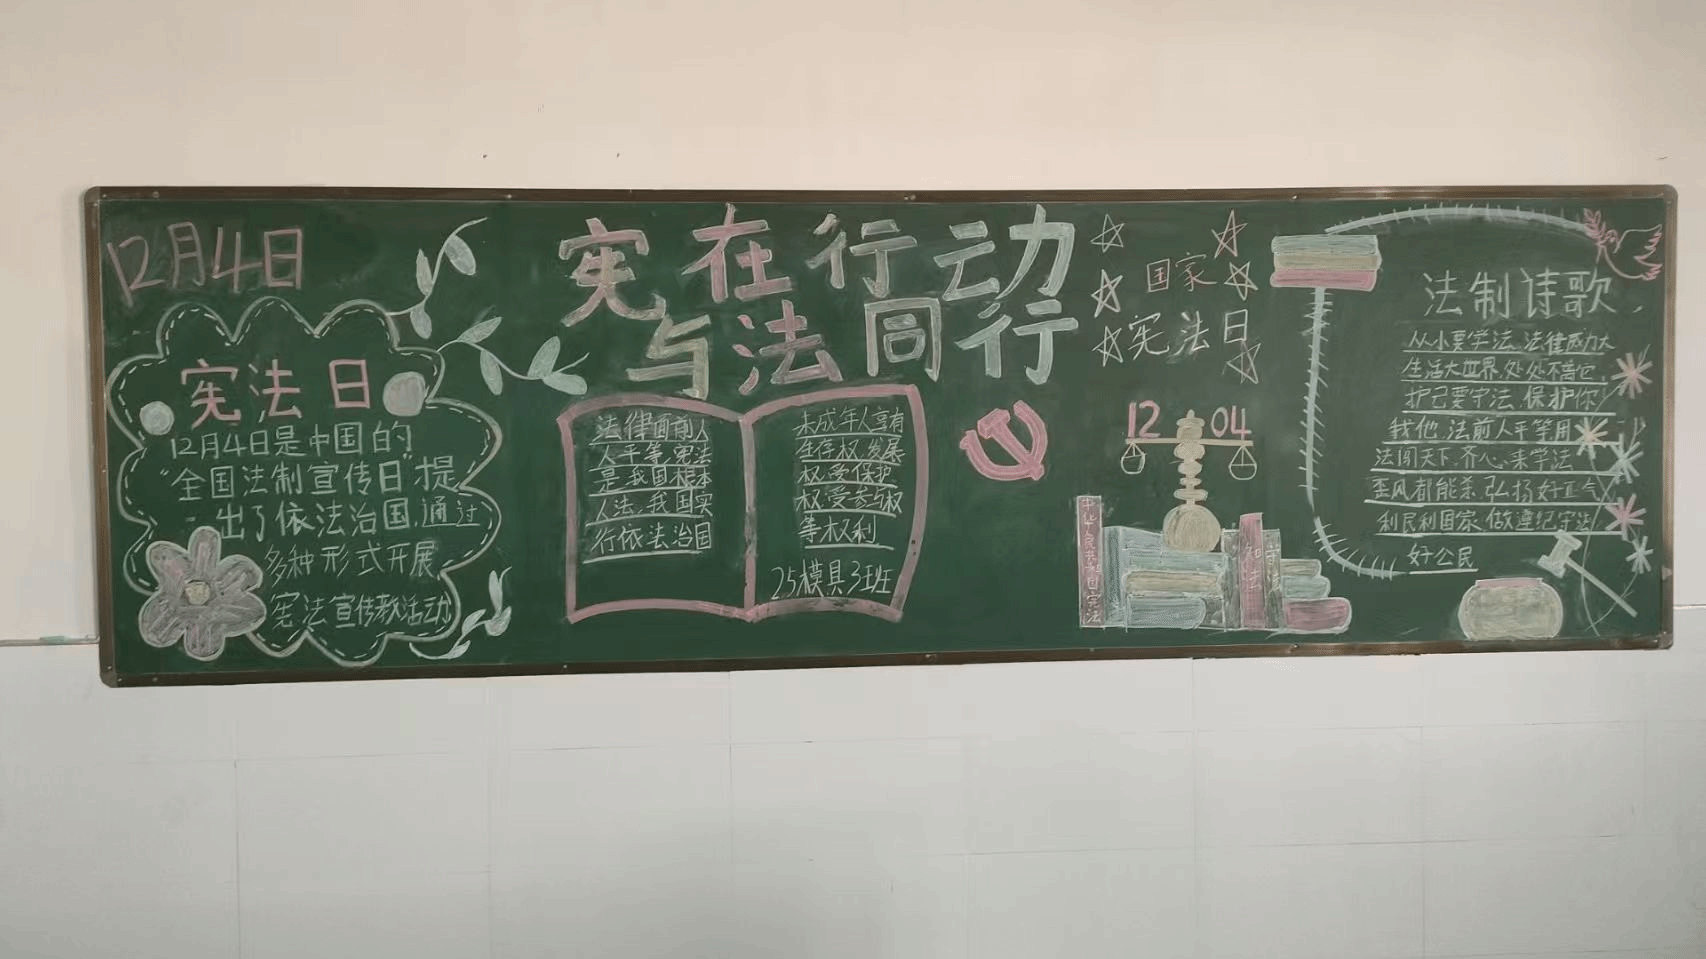 12月4日
宪法日
12月4日是中国的
“全国法制宣传日”提
出了依法治国,通过
多种形式开展
宪法宣传教活动
宪在行动
与法同行
法律面前人
人平等,宪法
是我国根本
人法,我国实
行依法治国
未成年人享有
生存权,发展
权,受保护
权,受参与权
等权利
25模具3班
国家
宪法日
12 04
中华人民共和国宪法
知法
守法
法制诗歌
从小要学法,法律威力大
生活大世界,处处不离它
护己要守法,保护你
我他,法前人平等用
法闯天下,齐心来学法
歪风都能杀,弘扬好正气
利民利国家,做遵纪守法
好公民